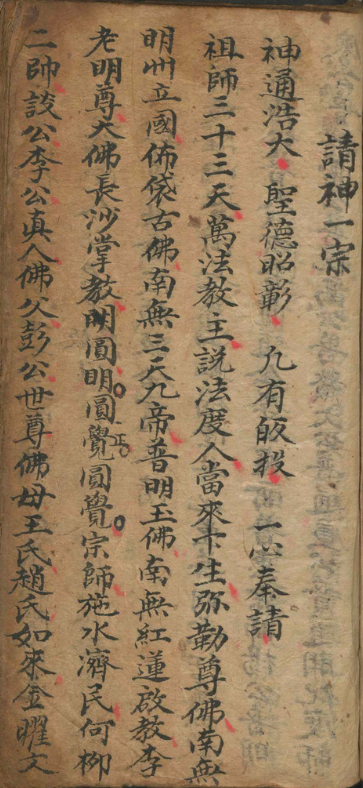 請神一宗
神通浩大 聖德昭彰 凢有皈投 一心奉請
祖師三十三天萬法教主說法度人當來下生弥勒尊佛南無
明州立國佈袋古佛南無三天九帝普明玉佛南無紅蓮啟教李
老明尊大佛長沙掌教明圓明圓覺正圓覺宗師施水濟民何柳
二帥談公李公真人佛父彭公世尊佛母王氏趙氏如來金曜文